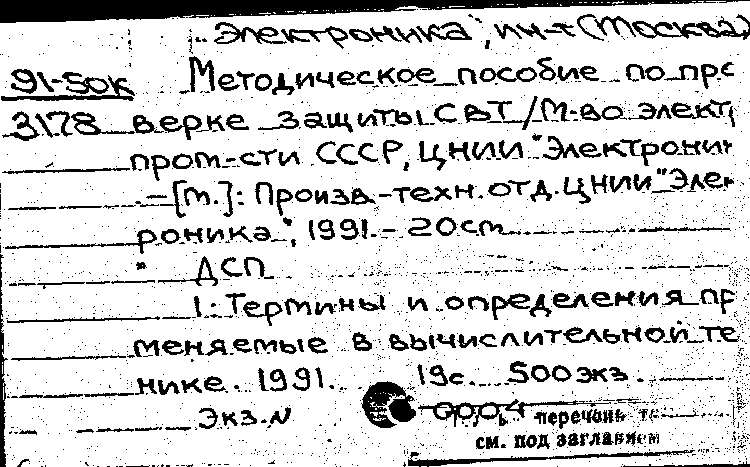 "Электроника", ин-т (Москва)
91-50к Методическое пособие по про
3178 верке защиты СВТ/М-во электр
пром-сти СССР, ЦНИИ "Электронин
.-[М.]: Произв.-техн. отд. ЦНИИ "Элек
роника", 1991. - 20см
" ДСП
1.: Термины и определения пр
меняемые в вычислительной те
нике. 1991. 19с. 500экз.
Экз.N перечень
см. под заглавием